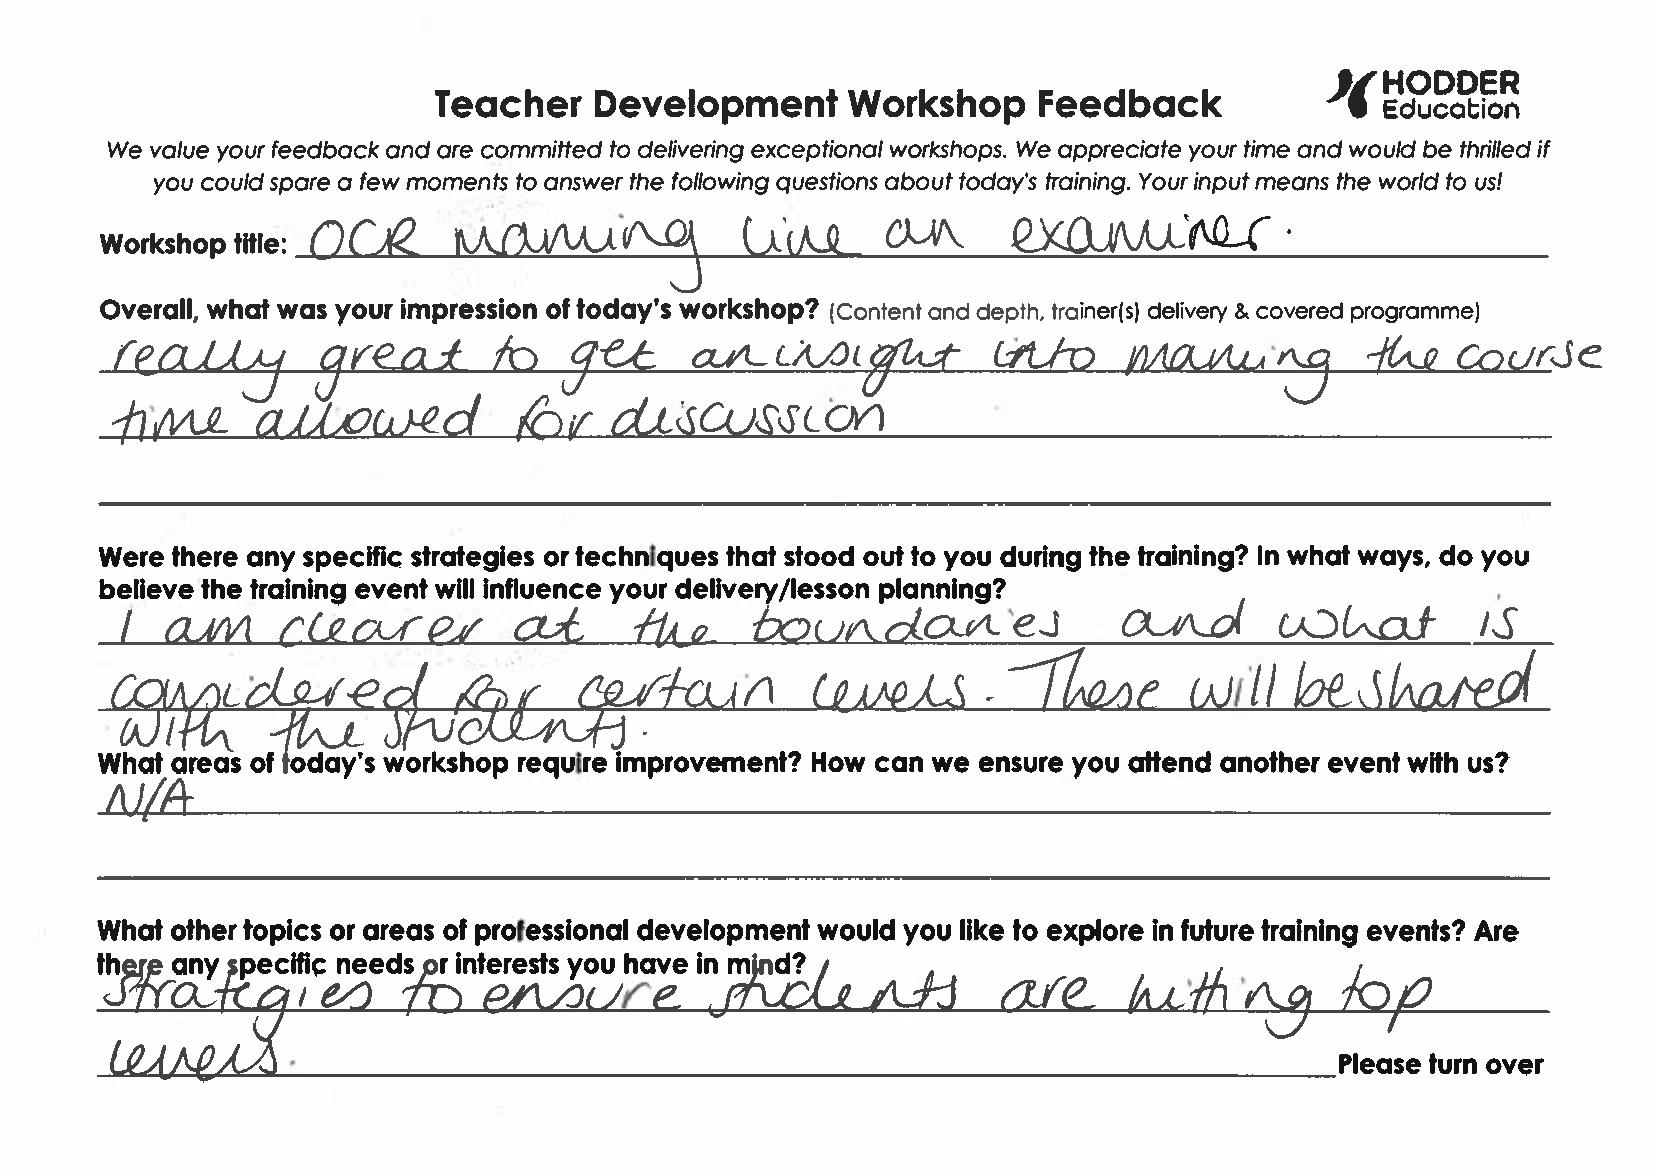 Teacher Development Workshop Feedback
HODDER
Education
We value your feedback and are committed to delivering exceptional workshops. We appreciate your time and would be thrilled if
you could spare a few moments to answer the following questions about today's training. Your input means the world to us!
Workshop title: OCR marking like an examiner.
Overall, what was your impression of today's workshop? (Content and depth, trainer(s) delivery & covered programme)
really great to get an insight into marking the course
time allowed for discussion
Were there any specific strategies or techniques that stood out to you during the training? In what ways, do you
believe the training event will influence your delivery/lesson planning?
I am clearer at the boundaries and what is
considered for certain levels. These will be shared
with the students.
What areas of today's workshop require improvement? How can we ensure you attend another event with us?
N/A
What other topics or areas of professional development would you like to explore in future training events? Are
there any specific needs or interests you have in mind?
strategies to ensure students are hitting top
levels.
Please turn over